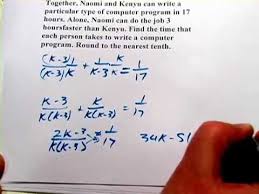 Together, Naomi and Kenyu can write a
particular type of computer program in 17
hours. Alone, Naomi can do the job 3
hoursfaster than Kenyu. Find the time that
each person takes to write a computer
program. Round to the nearest tenth.
(k-3)/(k-3)k + 1/(k-3) k/k = 1/17
k-3/k(k-3) + k/k(k-3) = 1/17
2k-3/k(k-3) = 1/17 34k-51